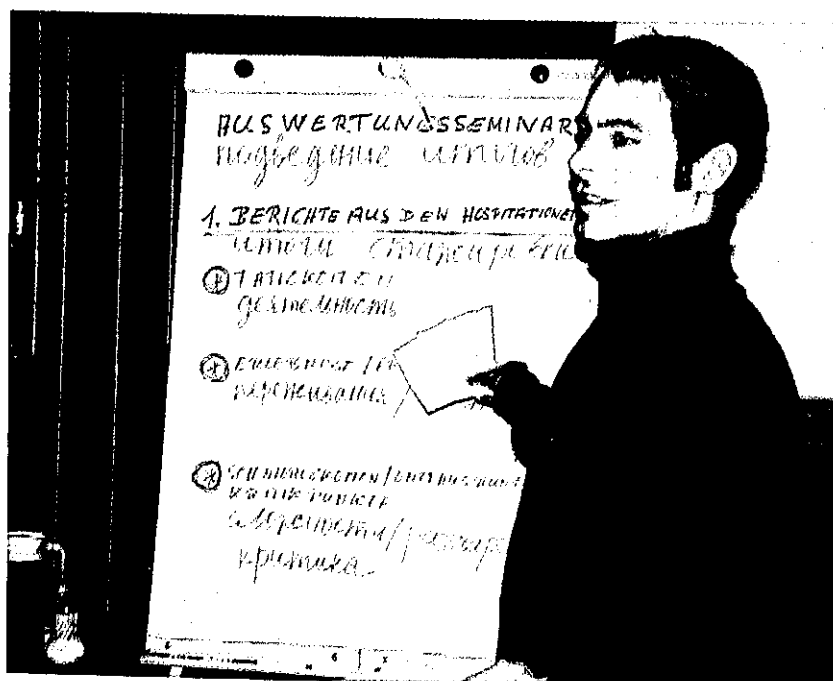 AUSWERTUNGSSEMINAR
подведение итогов
1. BERICHTE AUS DEN HOSPITATIONEN
итоги стажировки
TÄTIGKEITEN
деятельность
ERLEBNISSE /
переживания /
SCHWIERIGKEITEN /
KRITIKPUNKTE
сложности /
критика